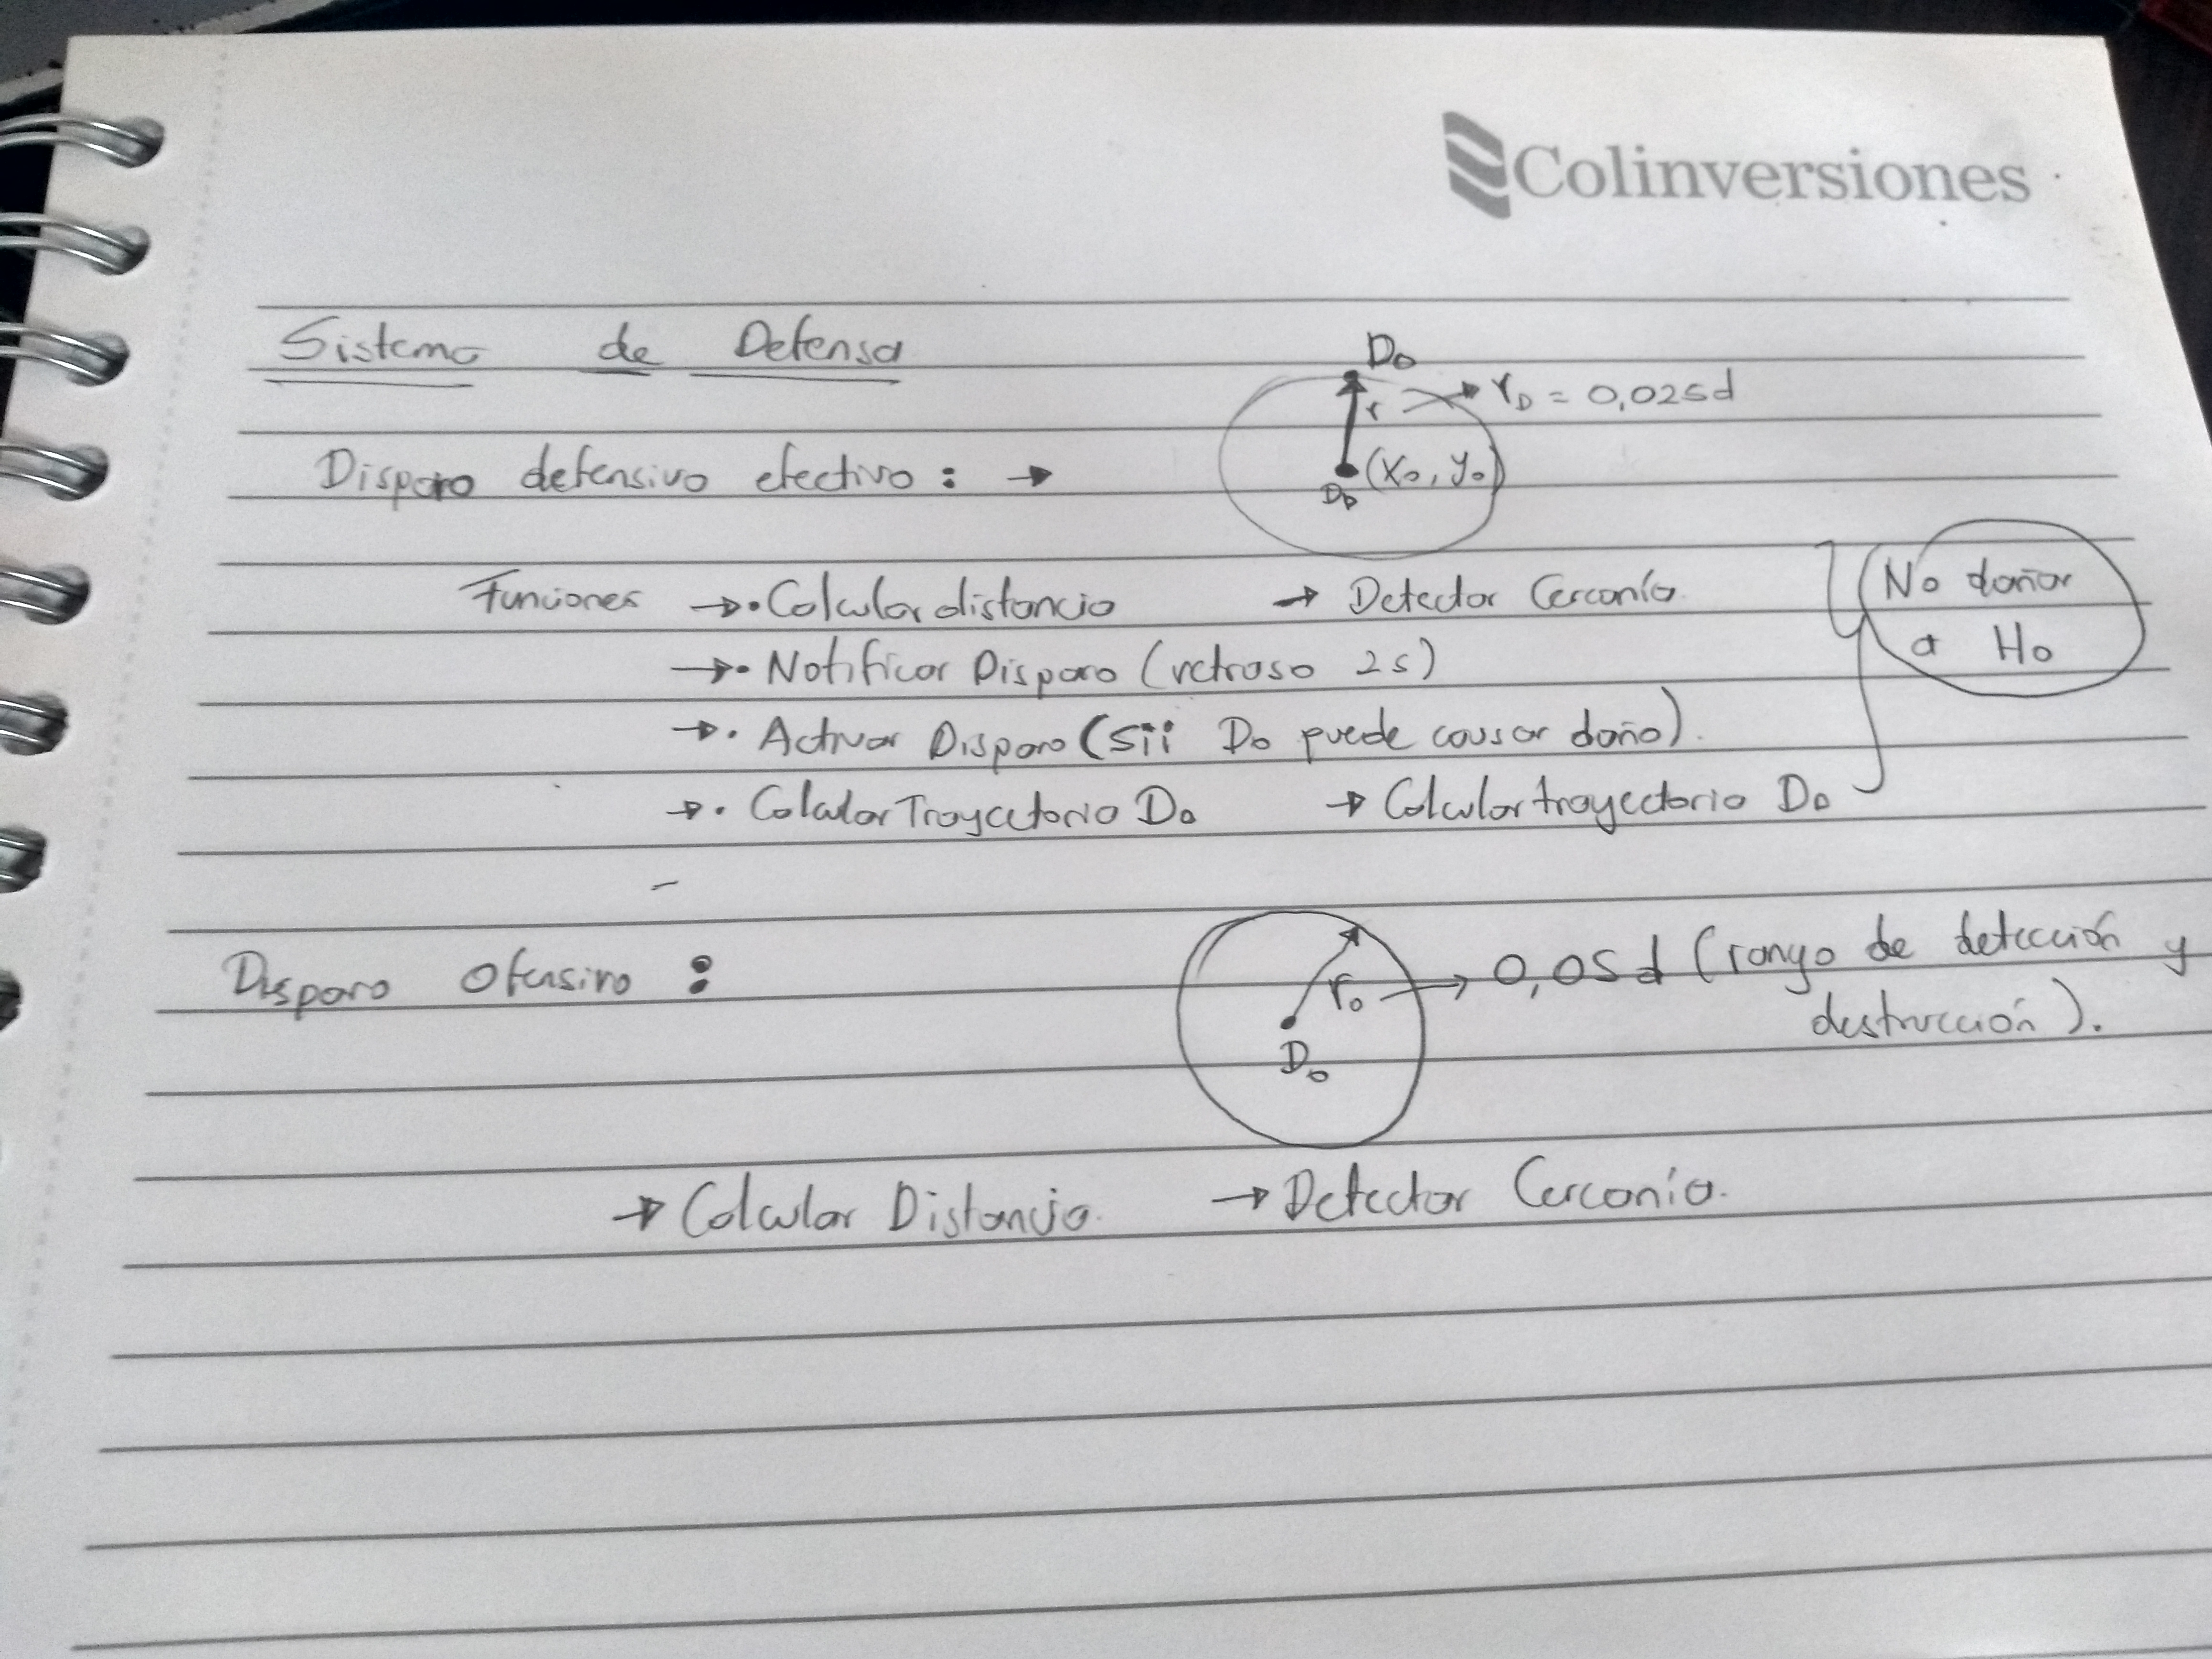 Colinversiones
Sistema de Defensa
Do
r → rD = 0,025d
Disparo defensivo efectivo : → (Xo, Yo)
DD
Funciones → • Calcular distancia → Detectar Cercanía.
No dañar
a Ho
→ • Notificar Disparo (retraso 2s)
→ • Activar Disparo (sii Do puede causar daño).
→ • Calcular Trayectoria Do → Calcular trayectoria Do
Disparo Ofensivo : ro → 0,05d (rango de detección y
destrucción).
Do
→ Calcular Distancia. → Detectar Cercanía.